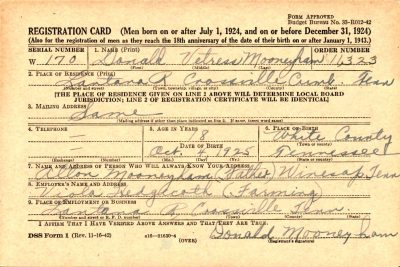 FORM APPROVED
Budget Bureau No. 33-R012-42
REGISTRATION CARD (Men born on or after July 1, 1924, and on or before December 31, 1924)
(Also for the registration of men as they reach the 18th anniversary of the date of their birth on or after January 1, 1943.)
SERIAL NUMBER 1. NAME (Print) ORDER NUMBER
W 170 Donald Vetress Mooneyham 16323
2. PLACE OF RESIDENCE (Print)
Lantana R Crossville Cumb. Tenn
(Number and street) (Town, township, village, or city) (County) (State)
[THE PLACE OF RESIDENCE GIVEN ON LINE 2 ABOVE WILL DETERMINE LOCAL BOARD
JURISDICTION; LINE 2 OF REGISTRATION CERTIFICATE WILL BE IDENTICAL]
3. MAILING ADDRESS
Same
(Mailing address if other than place indicated on line 2. If same, insert word same)
4. TELEPHONE 5. AGE IN YEARS 6. PLACE OF BIRTH
— 18 White County
DATE OF BIRTH (Town or county)
Oct 4 1925 Tennessee
(Exchange) (Number) (Mo.) (Day) (Yr.) (State or country)
7. NAME AND ADDRESS OF PERSON WHO WILL ALWAYS KNOW YOUR ADDRESS
Mooneyham (Father) Winesap, Tenn
8. EMPLOYER'S NAME AND ADDRESS
Hedgecoth (Farming)
9. PLACE OF EMPLOYMENT OR BUSINESS
Lantana R Crossville Tenn.
(Number and street or R. F. D. number) (Town) (County) (State)
I AFFIRM THAT I HAVE VERIFIED ABOVE ANSWERS AND THAT THEY ARE TRUE.
DSS Form 1 (Rev. 11-16-42) (OVER) Donald Mooneyham
(Registrant's signature)